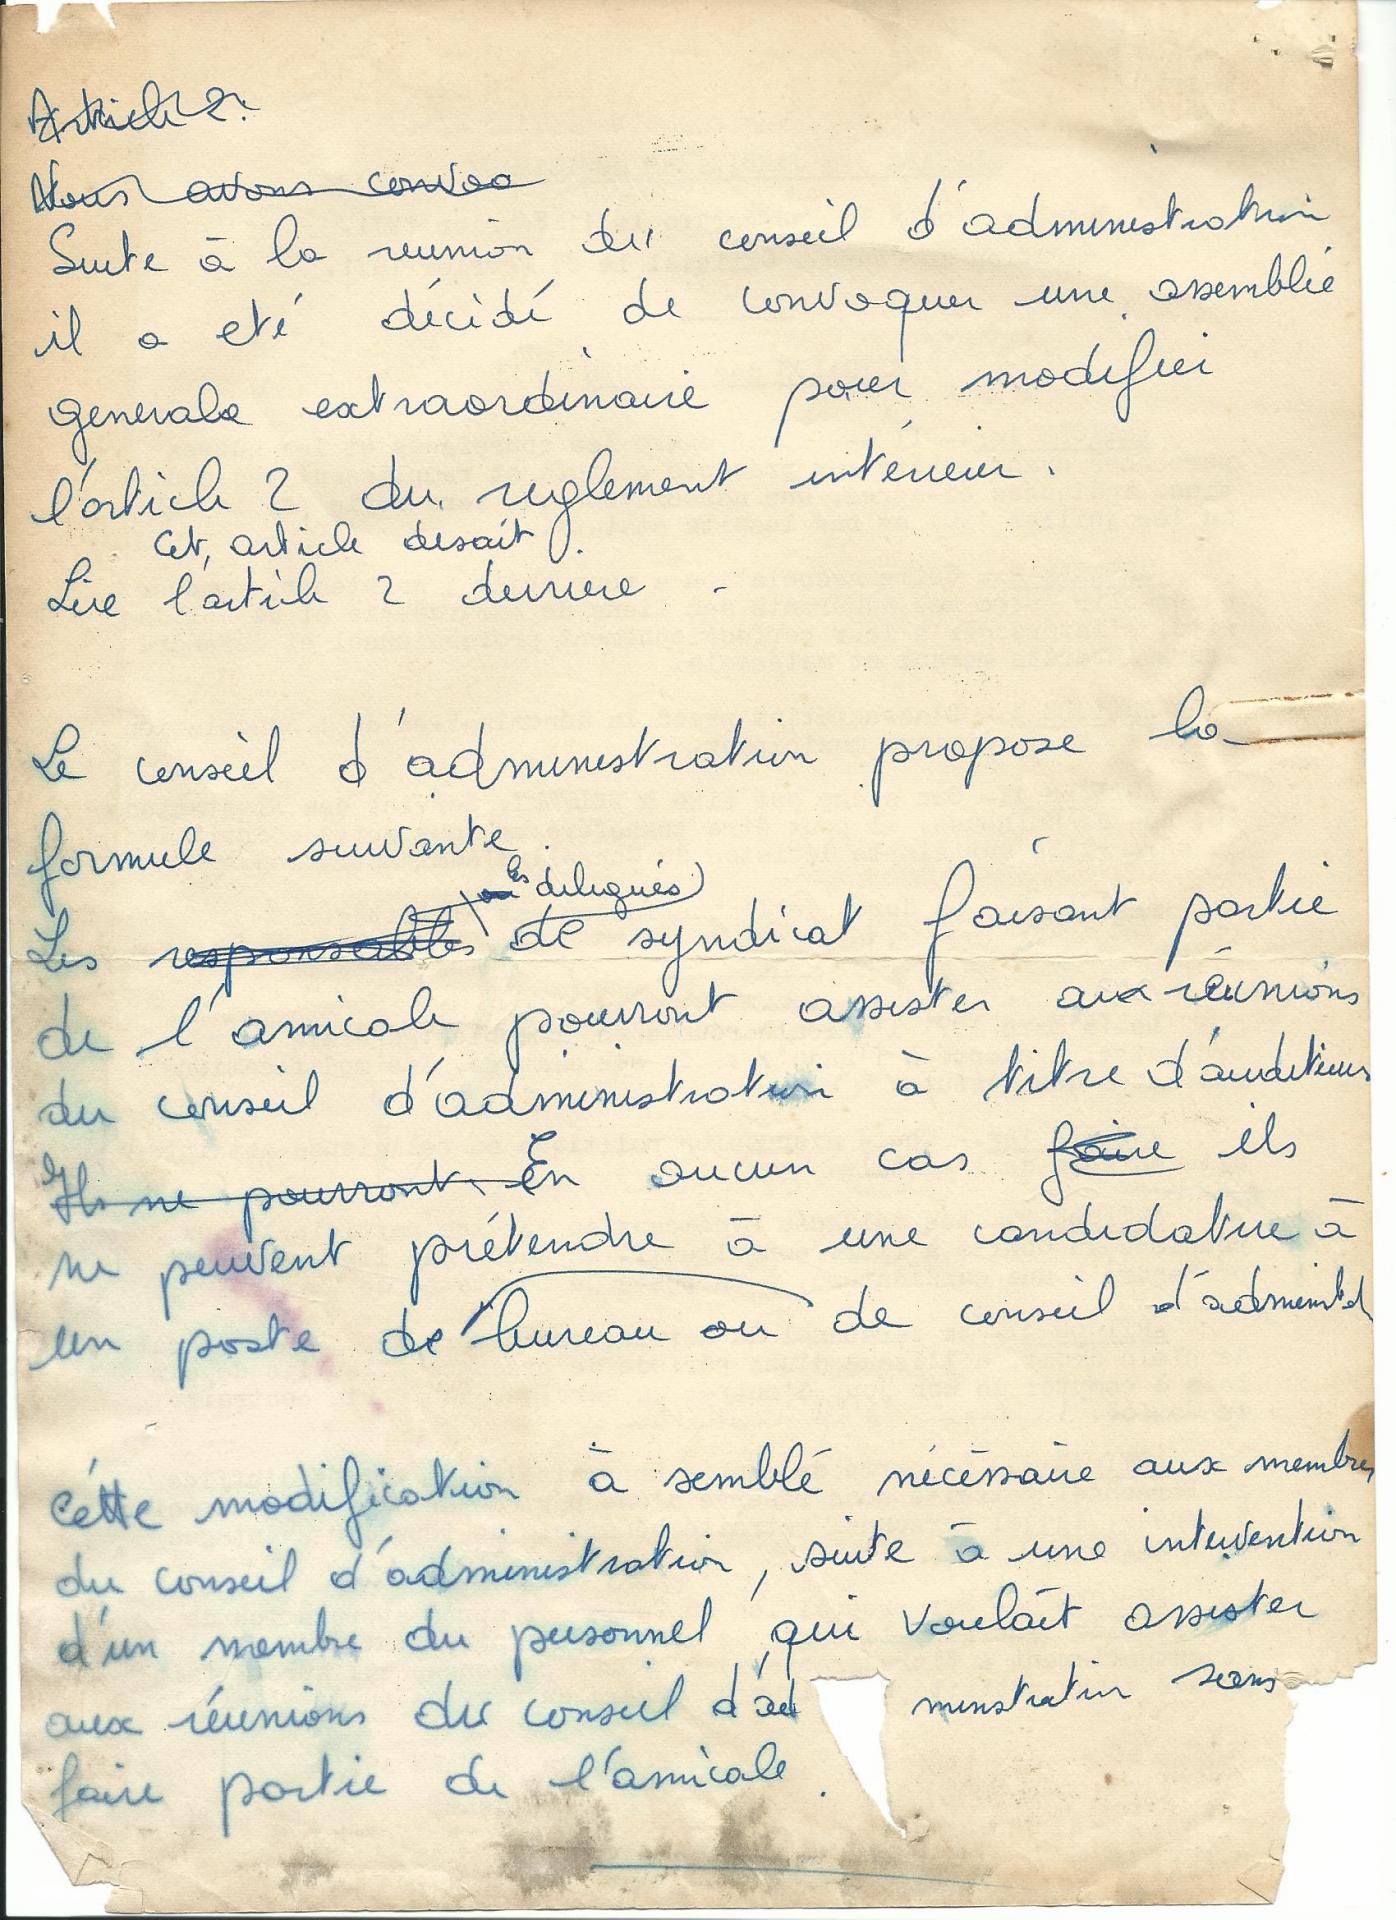 Article 2.
Nous avons convoc
Suite à la reunion du conseil d'administration
il a eté décidé de convoquer une assemblée
generale extraordinaire pour modifier
l'article 2 du reglement intérieur.
Cet article disait.
Lire l'article 2 derriere -
Le conseil d'administration propose la
formule suivante.
ou les delegués
Les responsables de syndicat faisant partie
de l'amicale pourront assister aux réunions
du conseil d'administration à titre d'auditeurs
Ils ne pourront. En aucun cas faire ils
ne peuvent prétendre à une candidature à
un poste de bureau ou de conseil d'administ
cétte modification à semblé nécéssaire aux membres
du conseil d'administration, suite à une intervention
d'un membre du personnel qui voulait assister
aux réunions du conseil d'ad ministration sans
faire partie de l'amicale.